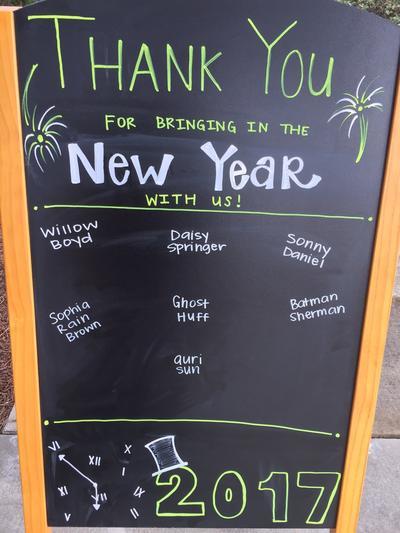 THANK YOU
FOR BRINGING IN THE
New Year
WITH US!
Willow
Boyd
Daisy
Springer
Sonny
Daniel
Sophia
Rain
Brown
Ghost
Huff
Batman
Sherman
auri
sun
VI
XII
X
I
XI
VII
IX
V
II
2017